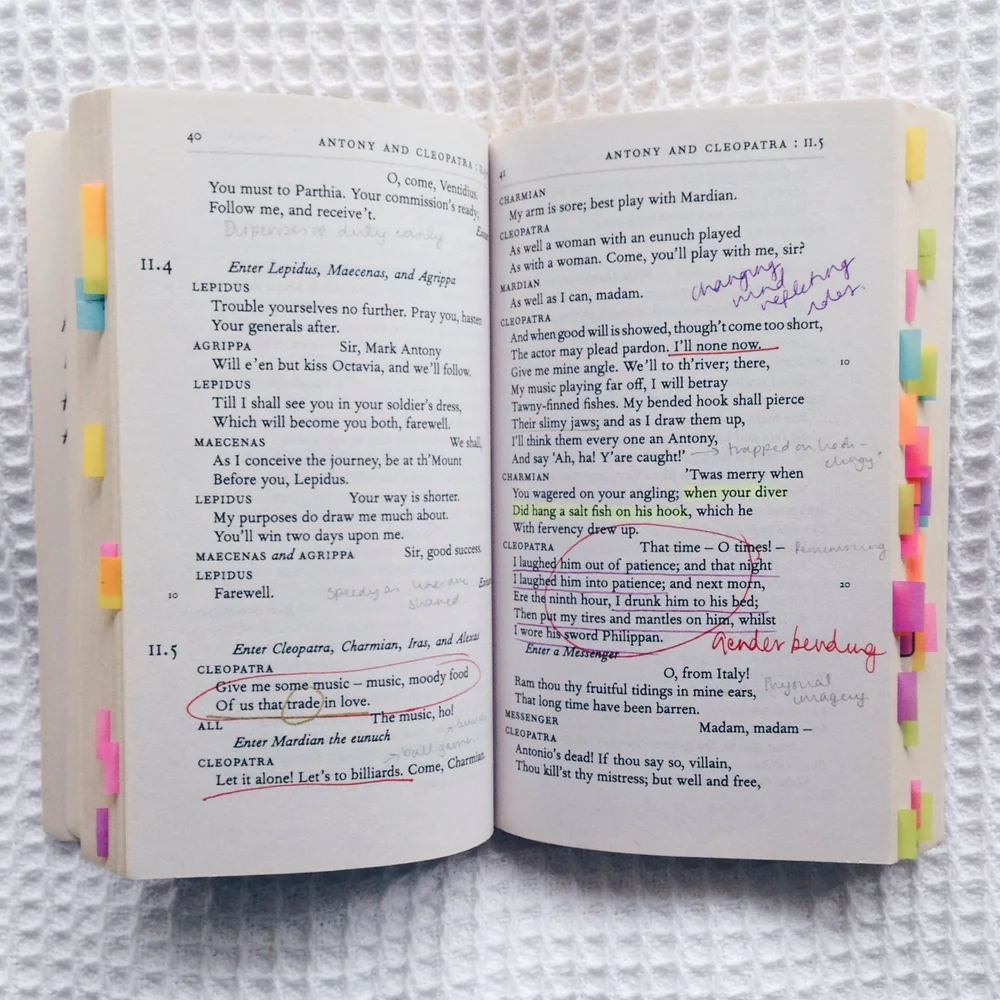 40
ANTONY AND CLEOPATRA : II.
O, come, Ventidius.
You must to Parthia. Your commission's ready;
Follow me, and receive't.
Dispenses of duty early
II.4
Enter Lepidus, Maecenas, and Agrippa
LEPIDUS
Trouble yourselves no further. Pray you, hasten
Your generals after.
AGRIPPA Sir, Mark Antony
Will e'en but kiss Octavia, and we'll follow.
LEPIDUS
Till I shall see you in your soldier's dress,
Which will become you both, farewell.
MAECENAS We shall,
As I conceive the journey, be at th'Mount
Before you, Lepidus.
LEPIDUS Your way is shorter.
My purposes do draw me much about.
You'll win two days upon me.
MAECENAS and AGRIPPA Sir, good success.
LEPIDUS
10 Farewell.
speedy as lines are
shared
II.5
Enter Cleopatra, Charmian, Iras, and Alexas
CLEOPATRA
Give me some music – music, moody food
Of us that trade in love.
ALL The music, ho!
Enter Mardian the eunuch
ball game
CLEOPATRA
Let it alone! Let's to billiards. Come, Charmian.
41
ANTONY AND CLEOPATRA : II.5
CHARMIAN
My arm is sore; best play with Mardian.
CLEOPATRA
As well a woman with an eunuch played
As with a woman. Come, you'll play with me, sir?
MARDIAN
As well as I can, madam.
changing
mind
reflecting
CLEOPATRA
And when good will is showed, though't come too short,
The actor may plead pardon. I'll none now.
Give me mine angle. We'll to th'river; there, 10
My music playing far off, I will betray
Tawny-finned fishes. My bended hook shall pierce
Their slimy jaws; and as I draw them up,
I'll think them every one an Antony,
And say 'Ah, ha! Y'are caught!'
trapped on hook -
CHARMIAN 'Twas merry when
You wagered on your angling; when your diver
Did hang a salt fish on his hook, which he
With fervency drew up.
CLEOPATRA That time – O times! –
Reminiscing
I laughed him out of patience; and that night
I laughed him into patience; and next morn, 20
Ere the ninth hour, I drunk him to his bed;
Then put my tires and mantles on him, whilst
I wore his sword Philippan.
Gender bending
Enter a Messenger
O, from Italy!
Ram thou thy fruitful tidings in mine ears,
That long time have been barren.
Physical
imagery
MESSENGER Madam, madam –
CLEOPATRA
Antonio's dead! If thou say so, villain,
Thou kill'st thy mistress; but well and free,